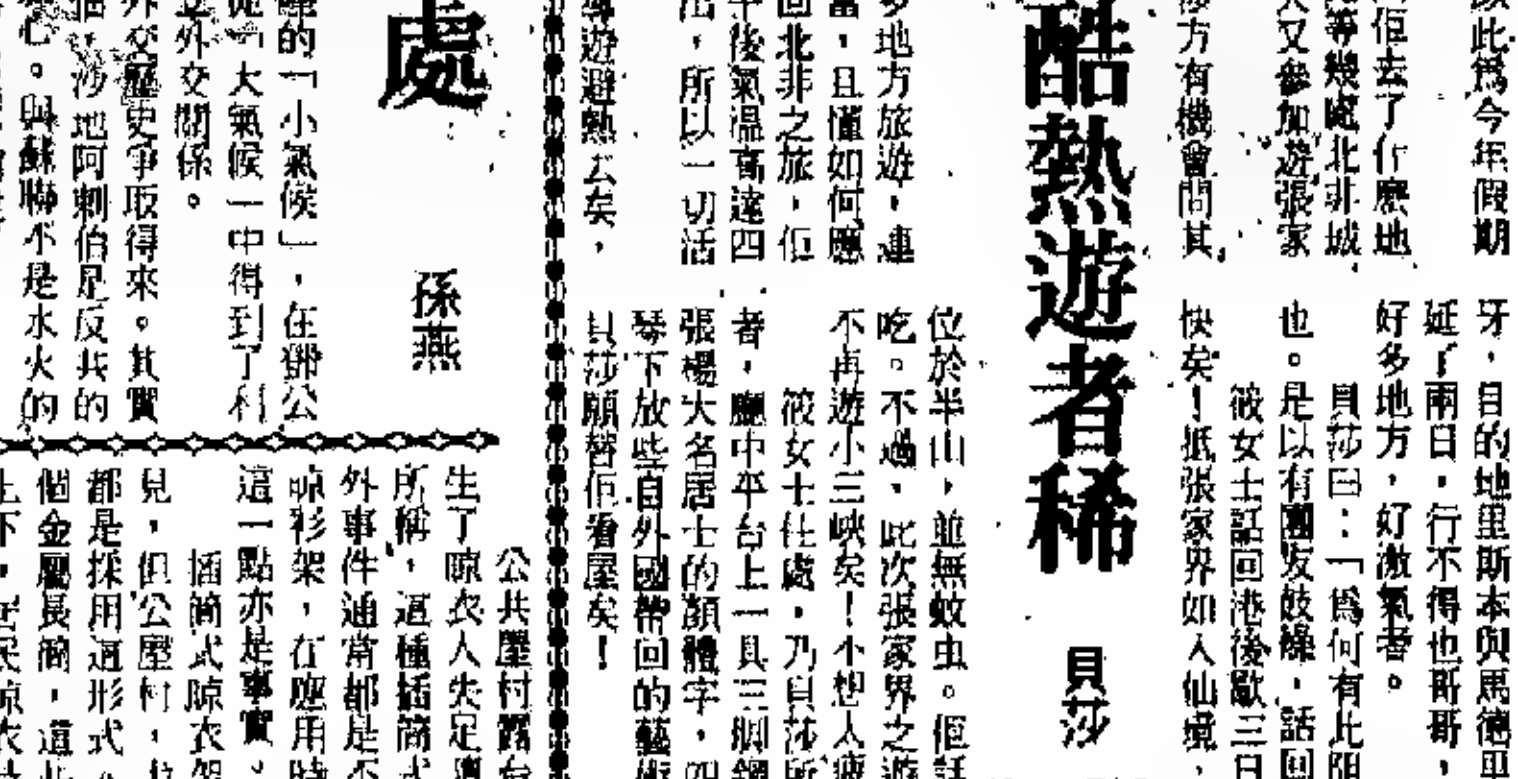 此為今年假期
佢去了什麼地
等幾處北非城
又參加遊張家
方有機會問其
牙，目的地里斯本與馬德里
延了兩日，行不得也哥哥，
好多地方，好激氣者。
貝莎曰：「為何有此阻
也。是以有團友鼓譟，話回
筱女士話回港後歇三日
快矣！抵張家界如入仙境，
酷熱遊者稀
貝莎
多地方旅遊，連
當，且懂如何應
回北非之旅，佢
午後氣溫高達四
出，所以一切活
導遊避熱去矣，
位於半山，並無蚊虫。佢話
吃。不過，此次張家界之遊
不再遊小三峽矣！不想人疲
筱女士住處，乃貝莎所
者，廳中平台上一具三腳鋼
張楊大名居士的顏體字，四
琴下放些自外國帶回的藝術
貝莎願替佢看屋矣！
處
孫燕
的「小氣候」，在鄧公
從「大氣候」中得到了利
立外交關係。
外交歷史爭取得來。其實
沙地阿剌伯是反共的
心。與蘇聯不是水火的
公共屋村露台
生了晾衣人失足墮
所稱，這種插筒式
外事件通常都是不
晾衫架，在應用時
這一點亦是事實。
插筒式晾衣架
見，但公屋村，尤
都是採用這形式，
個金屬長筒，這些
上下，居民晾衣